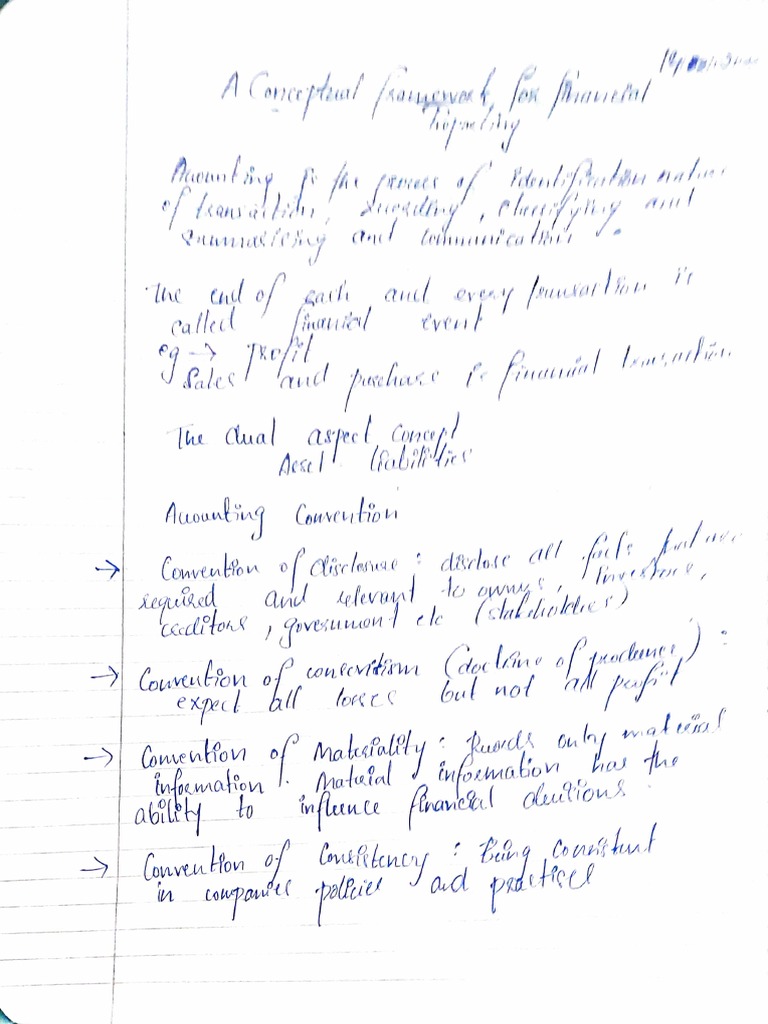 A Conceptual framework for financial
reporting
Accounting is the process of identification nature
of transaction, recording, classifying and
summarising and communication.
The end of each and every transaction is
called financial event
eg → Profit
Sales and purchase is financial transaction
The dual aspect concept
Asset liabilities
Accounting Convention
→ Convention of disclosure : disclose all facts that are
required and relevant to owners, investors,
creditors, government etc (stakeholders)
→ Convention of conservitism (doctrine of prudence) :
expect all losses but not all profit
→ Convention of Materiality : Records only material
information. Material information has the
ability to influence financial decisions.
→ Convention of Consistency : Being consistent
in companies policies and practices